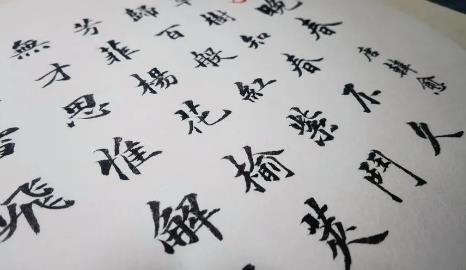 晚春唐韓愈
樹知春不久
歸百般紅紫鬥
芳菲楊花榆莢
無才思惟解
飛